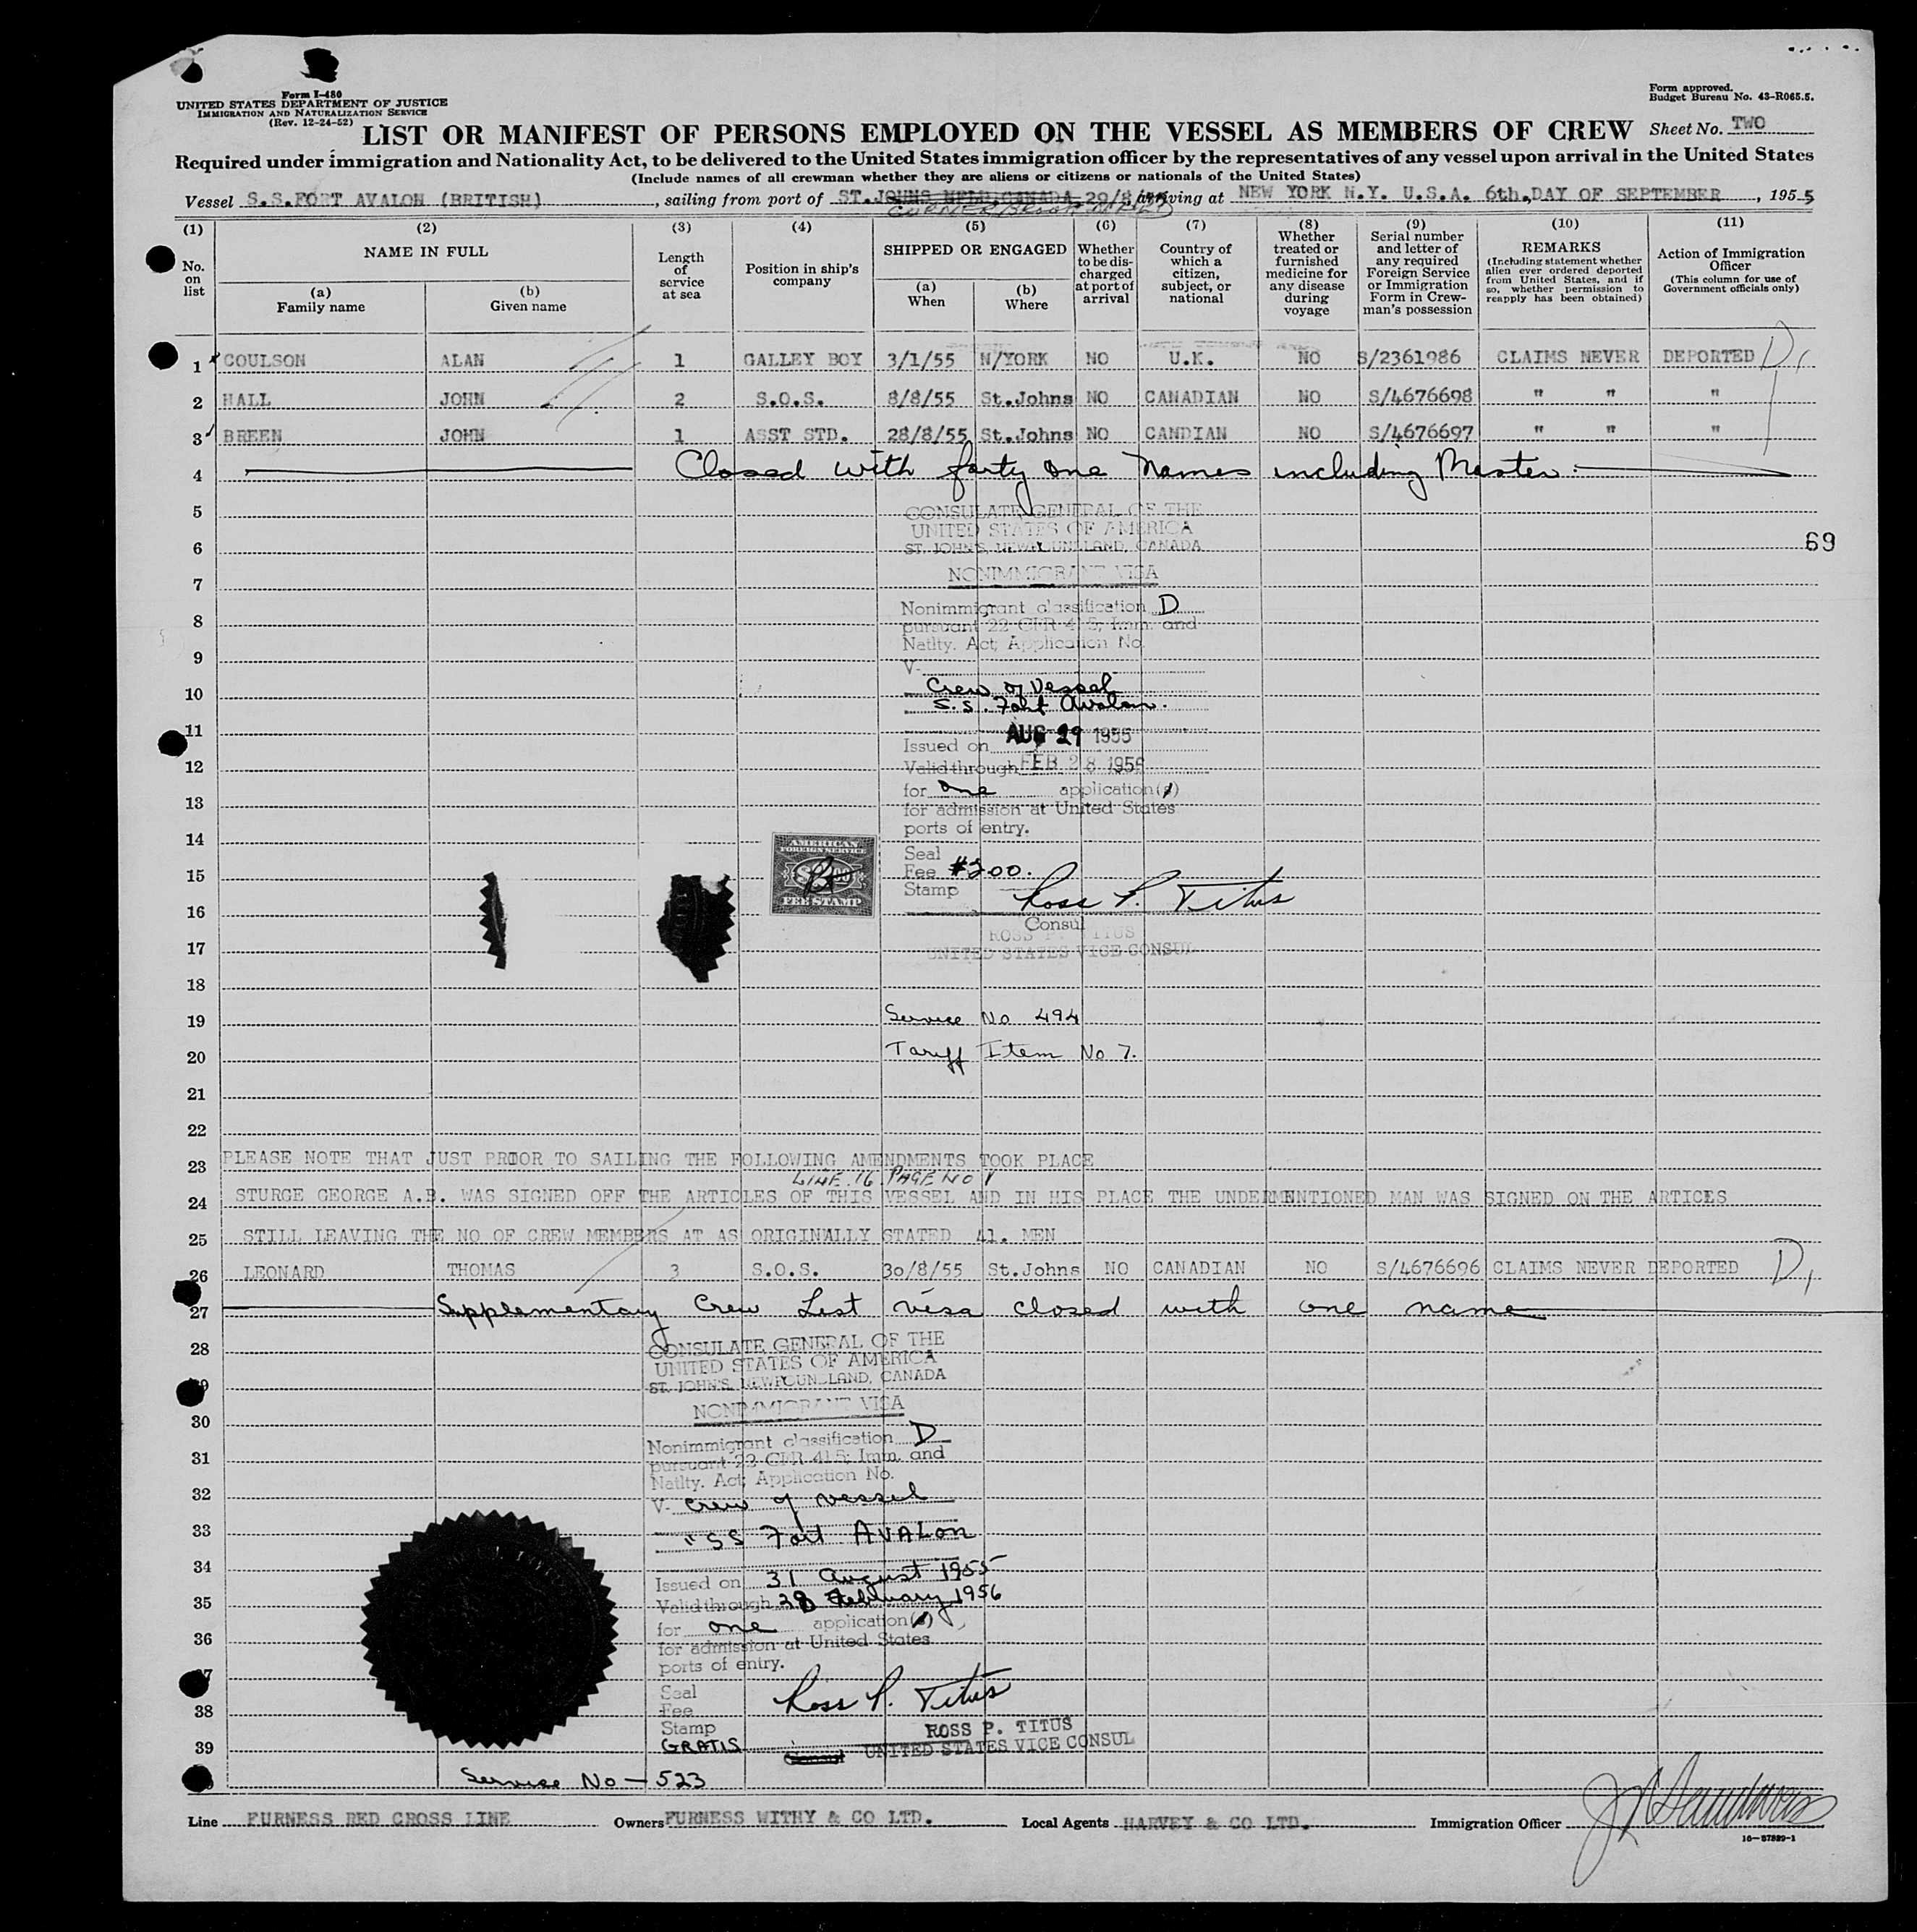 Form I-480
UNITED STATES DEPARTMENT OF JUSTICE
IMMIGRATION AND NATURALIZATION SERVICE
(Rev. 12-24-52)
Form approved.
Budget Bureau No. 43-R065.5.
LIST OR MANIFEST OF PERSONS EMPLOYED ON THE VESSEL AS MEMBERS OF CREW Sheet No. TWO
Required under immigration and Nationality Act, to be delivered to the United States immigration officer by the representatives of any vessel upon arrival in the United States
(Include names of all crewman whether they are aliens or citizens or nationals of the United States)
Vessel S.S.FORT AVALON (BRITISH), sailing from port of ST.JOHNS NFLD,CANADA 29/8/55 arriving at NEW YORK N.Y. U.S.A. 6th.,DAY OF SEPTEMBER, 1955
CORNER BROOK NFLD
(1) (2) (3) (4) (5) (6) (7) (8) (9) (10) (11)
No. on list
NAME IN FULL
(a) Family name
(b) Given name
Length of service at sea
Position in ship's company
SHIPPED OR ENGAGED
(a) When
(b) Where
Whether to be discharged at port of arrival
Country of which a citizen, subject, or national
Whether treated or furnished medicine for any disease during voyage
Serial number and letter of any required Foreign Service or Immigration Form in Crewman's possession
REMARKS
(Including statement whether alien ever ordered deported from United States, and if so, whether permission to reapply has been obtained)
Action of Immigration Officer
(This column for use of Government officials only)
1 COULSON ALAN 1 GALLEY BOY 3/1/55 N/YORK NO U.K. NO S/2361986 CLAIMS NEVER DEPORTED D1
2 HALL JOHN 2 S.O.S. 8/8/55 St.Johns NO CANADIAN NO S/4676698 " " "
3 BREEN JOHN 1 ASST STD. 28/8/55 St.Johns NO CANDIAN NO S/4676697 " " "
4 Closed with forty one names including Master.
5
CONSULATE GENERAL OF THE
UNITED STATES OF AMERICA
6
ST. JOHN'S, NEWFOUNDLAND, CANADA
69
7
NONIMMIGRANT VISA
Nonimmigrant classification D
8
pursuant 22 CFR 41.5; Imm. and
Natlty. Act; Application No.
9
V-
10
Crew of Vessel
S.S. Fort Avalon.
11
AUG 29 1955
Issued on
12
Valid through FEB 28 1956
for one application(s)
13
for admission at United States
ports of entry.
14
AMERICAN
FOREIGN SERVICE
FEE STAMP
Seal
15
Fee $200.
Stamp
Ross P. Titus
16
Consul
ROSS P. TITUS
17
UNITED STATES VICE CONSUL
18
19 Service No 494
20 Tariff Item No 7.
21
22
23 PLEASE NOTE THAT JUST PRIOR TO SAILING THE FOLLOWING AMENDMENTS TOOK PLACE
LINE 16 PAGE NO 1
24 STURGE GEORGE A.B. WAS SIGNED OFF THE ARTICLES OF THIS VESSEL AND IN HIS PLACE THE UNDERMENTIONED MAN WAS SIGNED ON THE ARTICLS
25 STILL LEAVING THE NO OF CREW MEMBERS AT AS ORIGINALLY STATED 41. MEN
26 LEONARD THOMAS 3 S.O.S. 30/8/55 St.Johns NO CANADIAN NO S/4676696 CLAIMS NEVER DEPORTED D1
27 Supplementary Crew List visa closed with one name
28
CONSULATE GENERAL OF THE
UNITED STATES OF AMERICA
ST. JOHN'S, NEWFOUNDLAND, CANADA
30
NONIMMIGRANT VISA
Nonimmigrant classification D
31
pursuant 22 CFR 41.5; Imm. and
Natlty. Act; Application No.
32
V- Crew of vessel
33
"SS Fort AVALON
34
Issued on 31 August 1955
35
Valid through 28 February 1956
for one application(s)
36
for admission at United States
ports of entry.
Seal
38
Fee
Ross P. Titus
Stamp
GRATIS
39
ROSS P. TITUS
Consul UNITED STATES VICE CONSUL
Service No - 523
Line FURNESS RED CROSS LINE Owners FURNESS WITHY & CO LTD. Local Agents HARVEY & CO LTD. Immigration Officer
16-67829-1